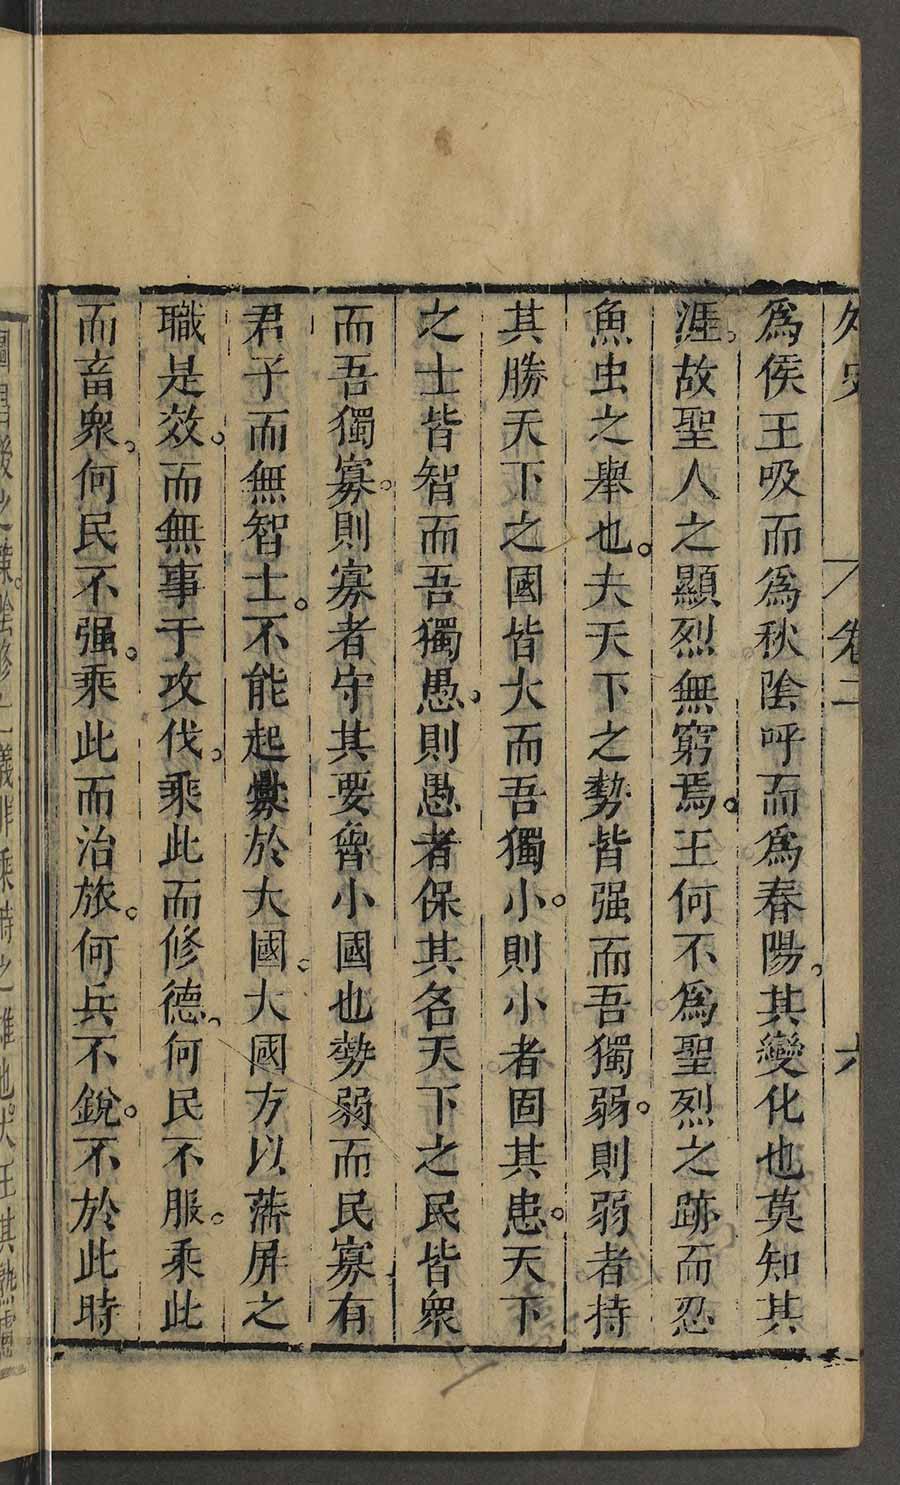 外史 卷二 六
爲侯王吸而爲秋陰呼而爲春陽。其變化也莫知其
涯。故聖人之顯烈無窮焉。王何不爲聖烈之跡而忍
魚虫之舉也。夫天下之勢皆强而吾獨弱。則弱者持
其勝天下之國皆大而吾獨小。則小者固其患。天下
之士皆智而吾獨愚。則愚者保其名天下之民皆衆
而吾獨寡。則寡者守其要魯小國也勢弱而民寡有
君子而無智士。不能起釁於大國。大國方以藩屏之
職是效。而無事于攻伐。乘此而修德。何民不服。乘此
而畜衆。何民不强。乘此而治旅。何兵不銳。不於此時